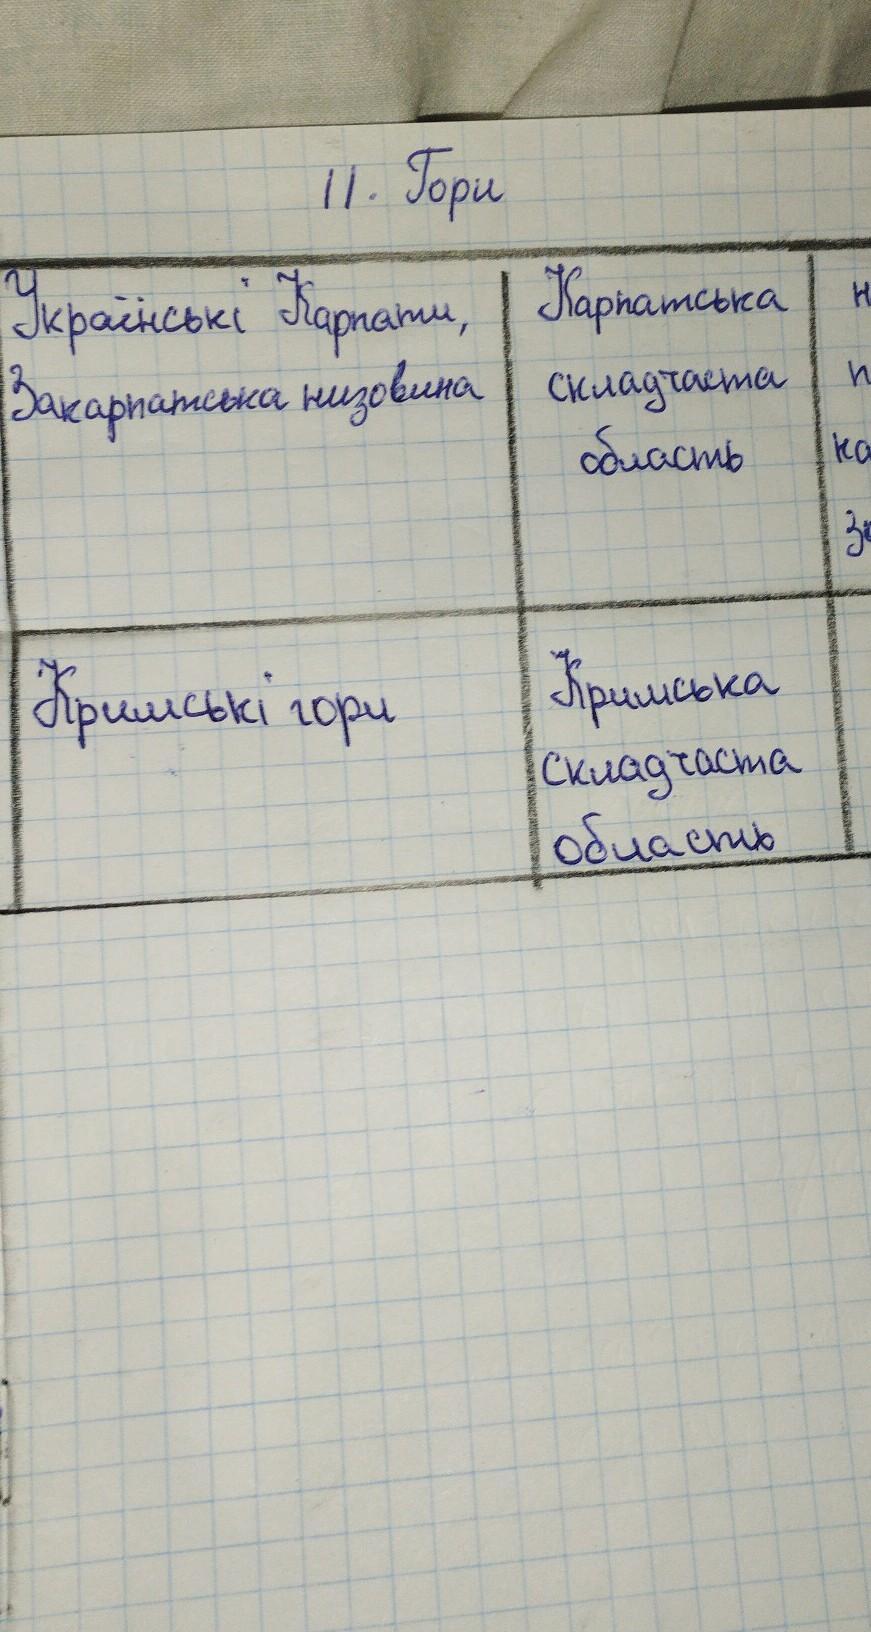 II. Гори
Українські Карпати,
Закарпатська низовина
Карпатська
складчаста
область
Кримські гори
Кримська
складчаста
область